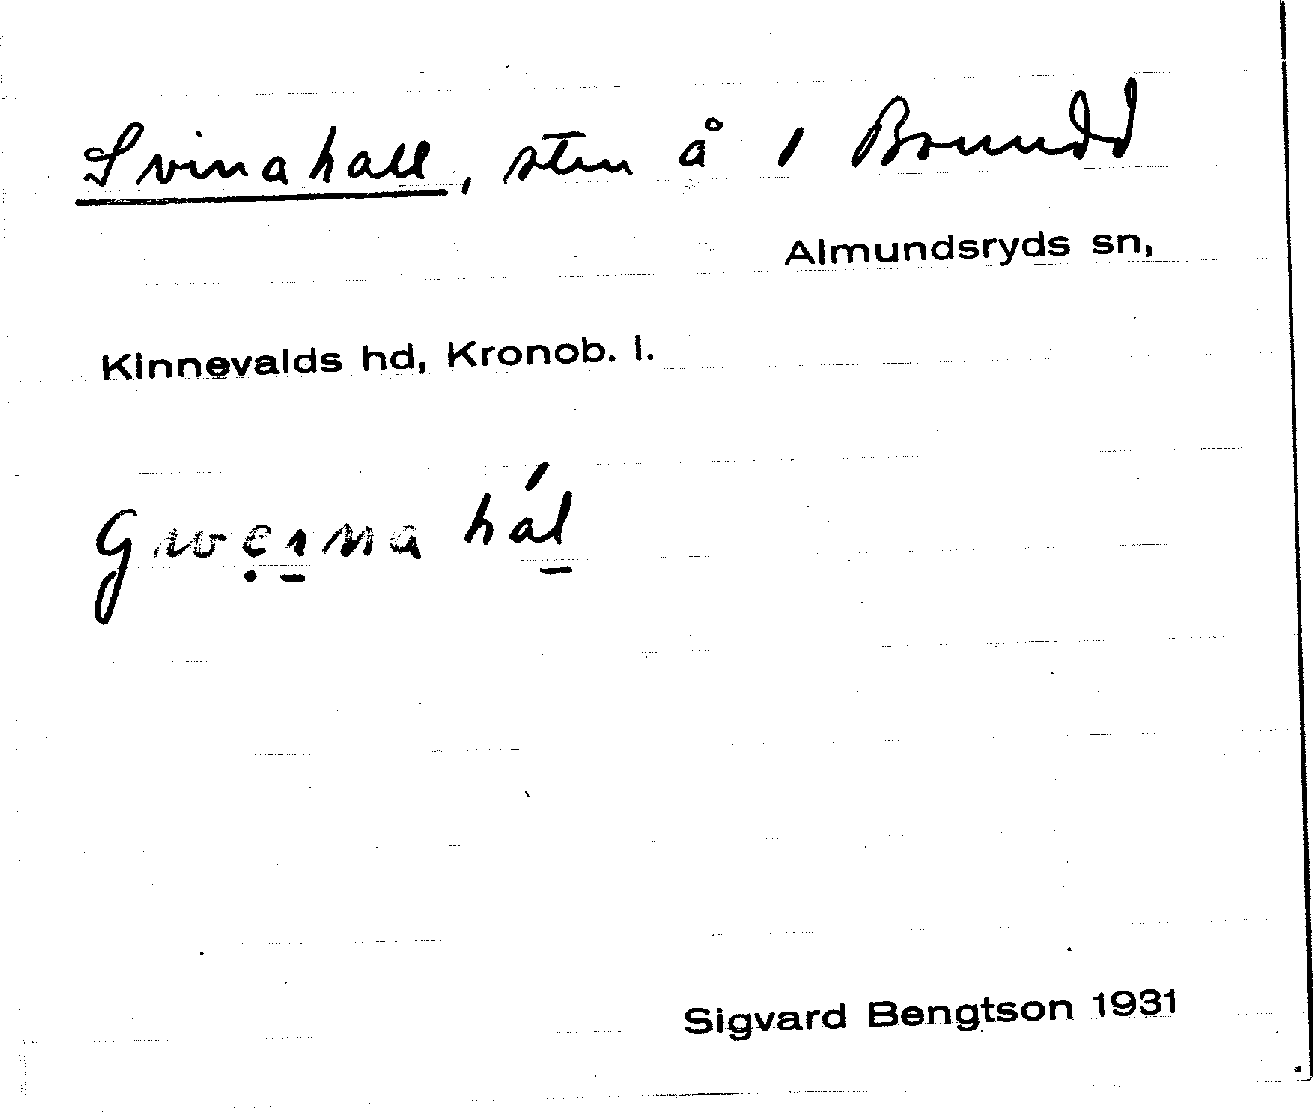 Svinahall, sten å 1 Brundd
Almundsryds sn,
Kinnevalds hd, Kronob. l.
hál
Sigvard Bengtson 1931